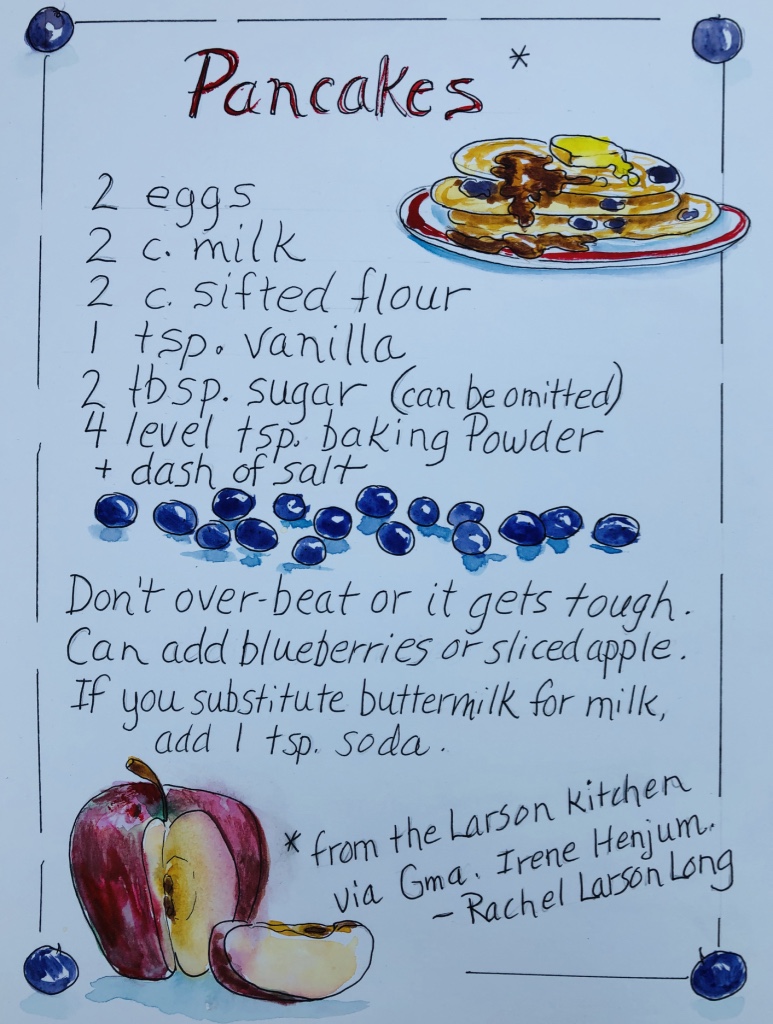 Pancakes *
2 eggs
2 c. milk
2 c. sifted flour
1 tsp. vanilla
2 tbsp. sugar (can be omitted)
4 level tsp. baking Powder
+ dash of salt
Don't over-beat or it gets tough.
Can add blueberries or sliced apple.
If you substitute buttermilk for milk,
add 1 tsp. soda.
* from the Larson kitchen
via Gma. Irene Henjum.
- Rachel Larson Long